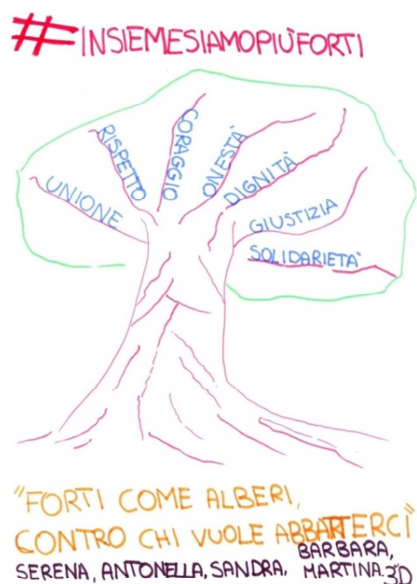 #INSIEMESIAMOPIÙFORTI
UNIONE
RISPETTO
CORAGGIO
ONESTÀ
DIGNITÀ
GIUSTIZIA
SOLIDARIETÀ
"FORTI COME ALBERI,
CONTRO CHI VUOLE ABBATTERCI"
SERENA, ANTONELLA, SANDRA, BARBARA,
MARTINA 3D